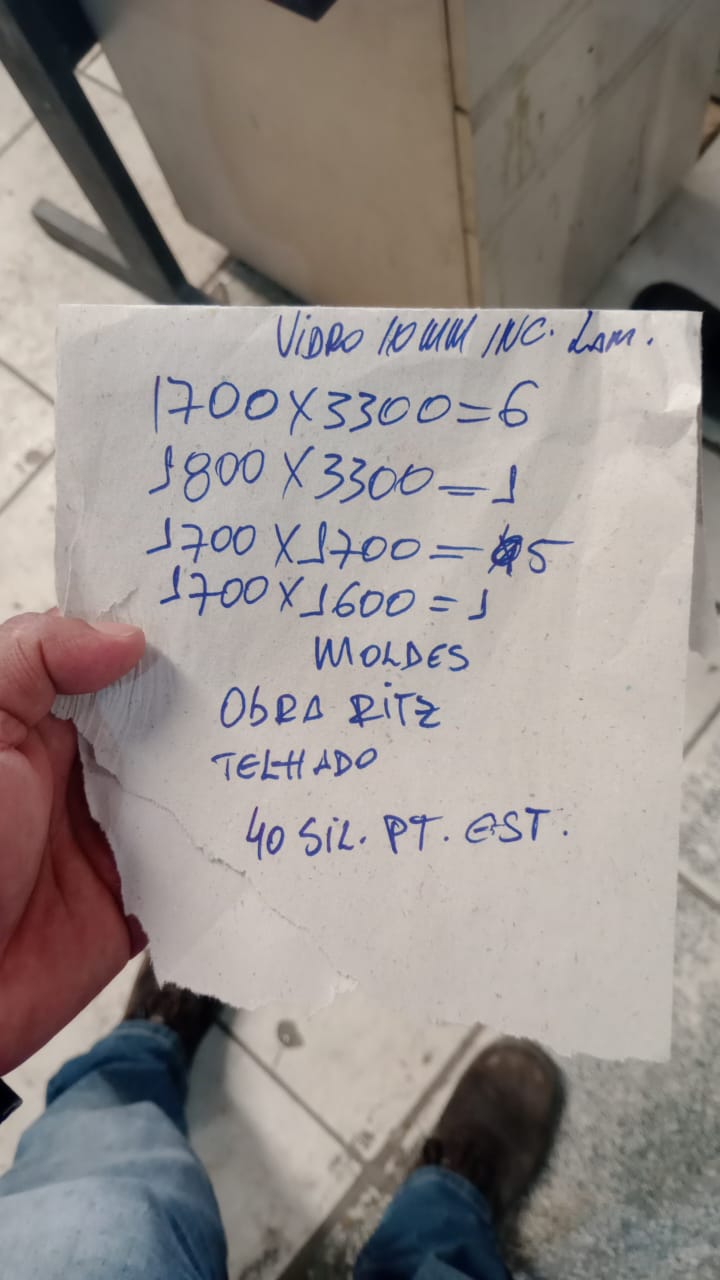 VIDRO 10MM INC. LAM.
1700X3300=6
1800X3300=1
1700X1700=5
1700X1600=1
MOLDES
OBRA RITZ
TELHADO
40 SIL. PT. EST.